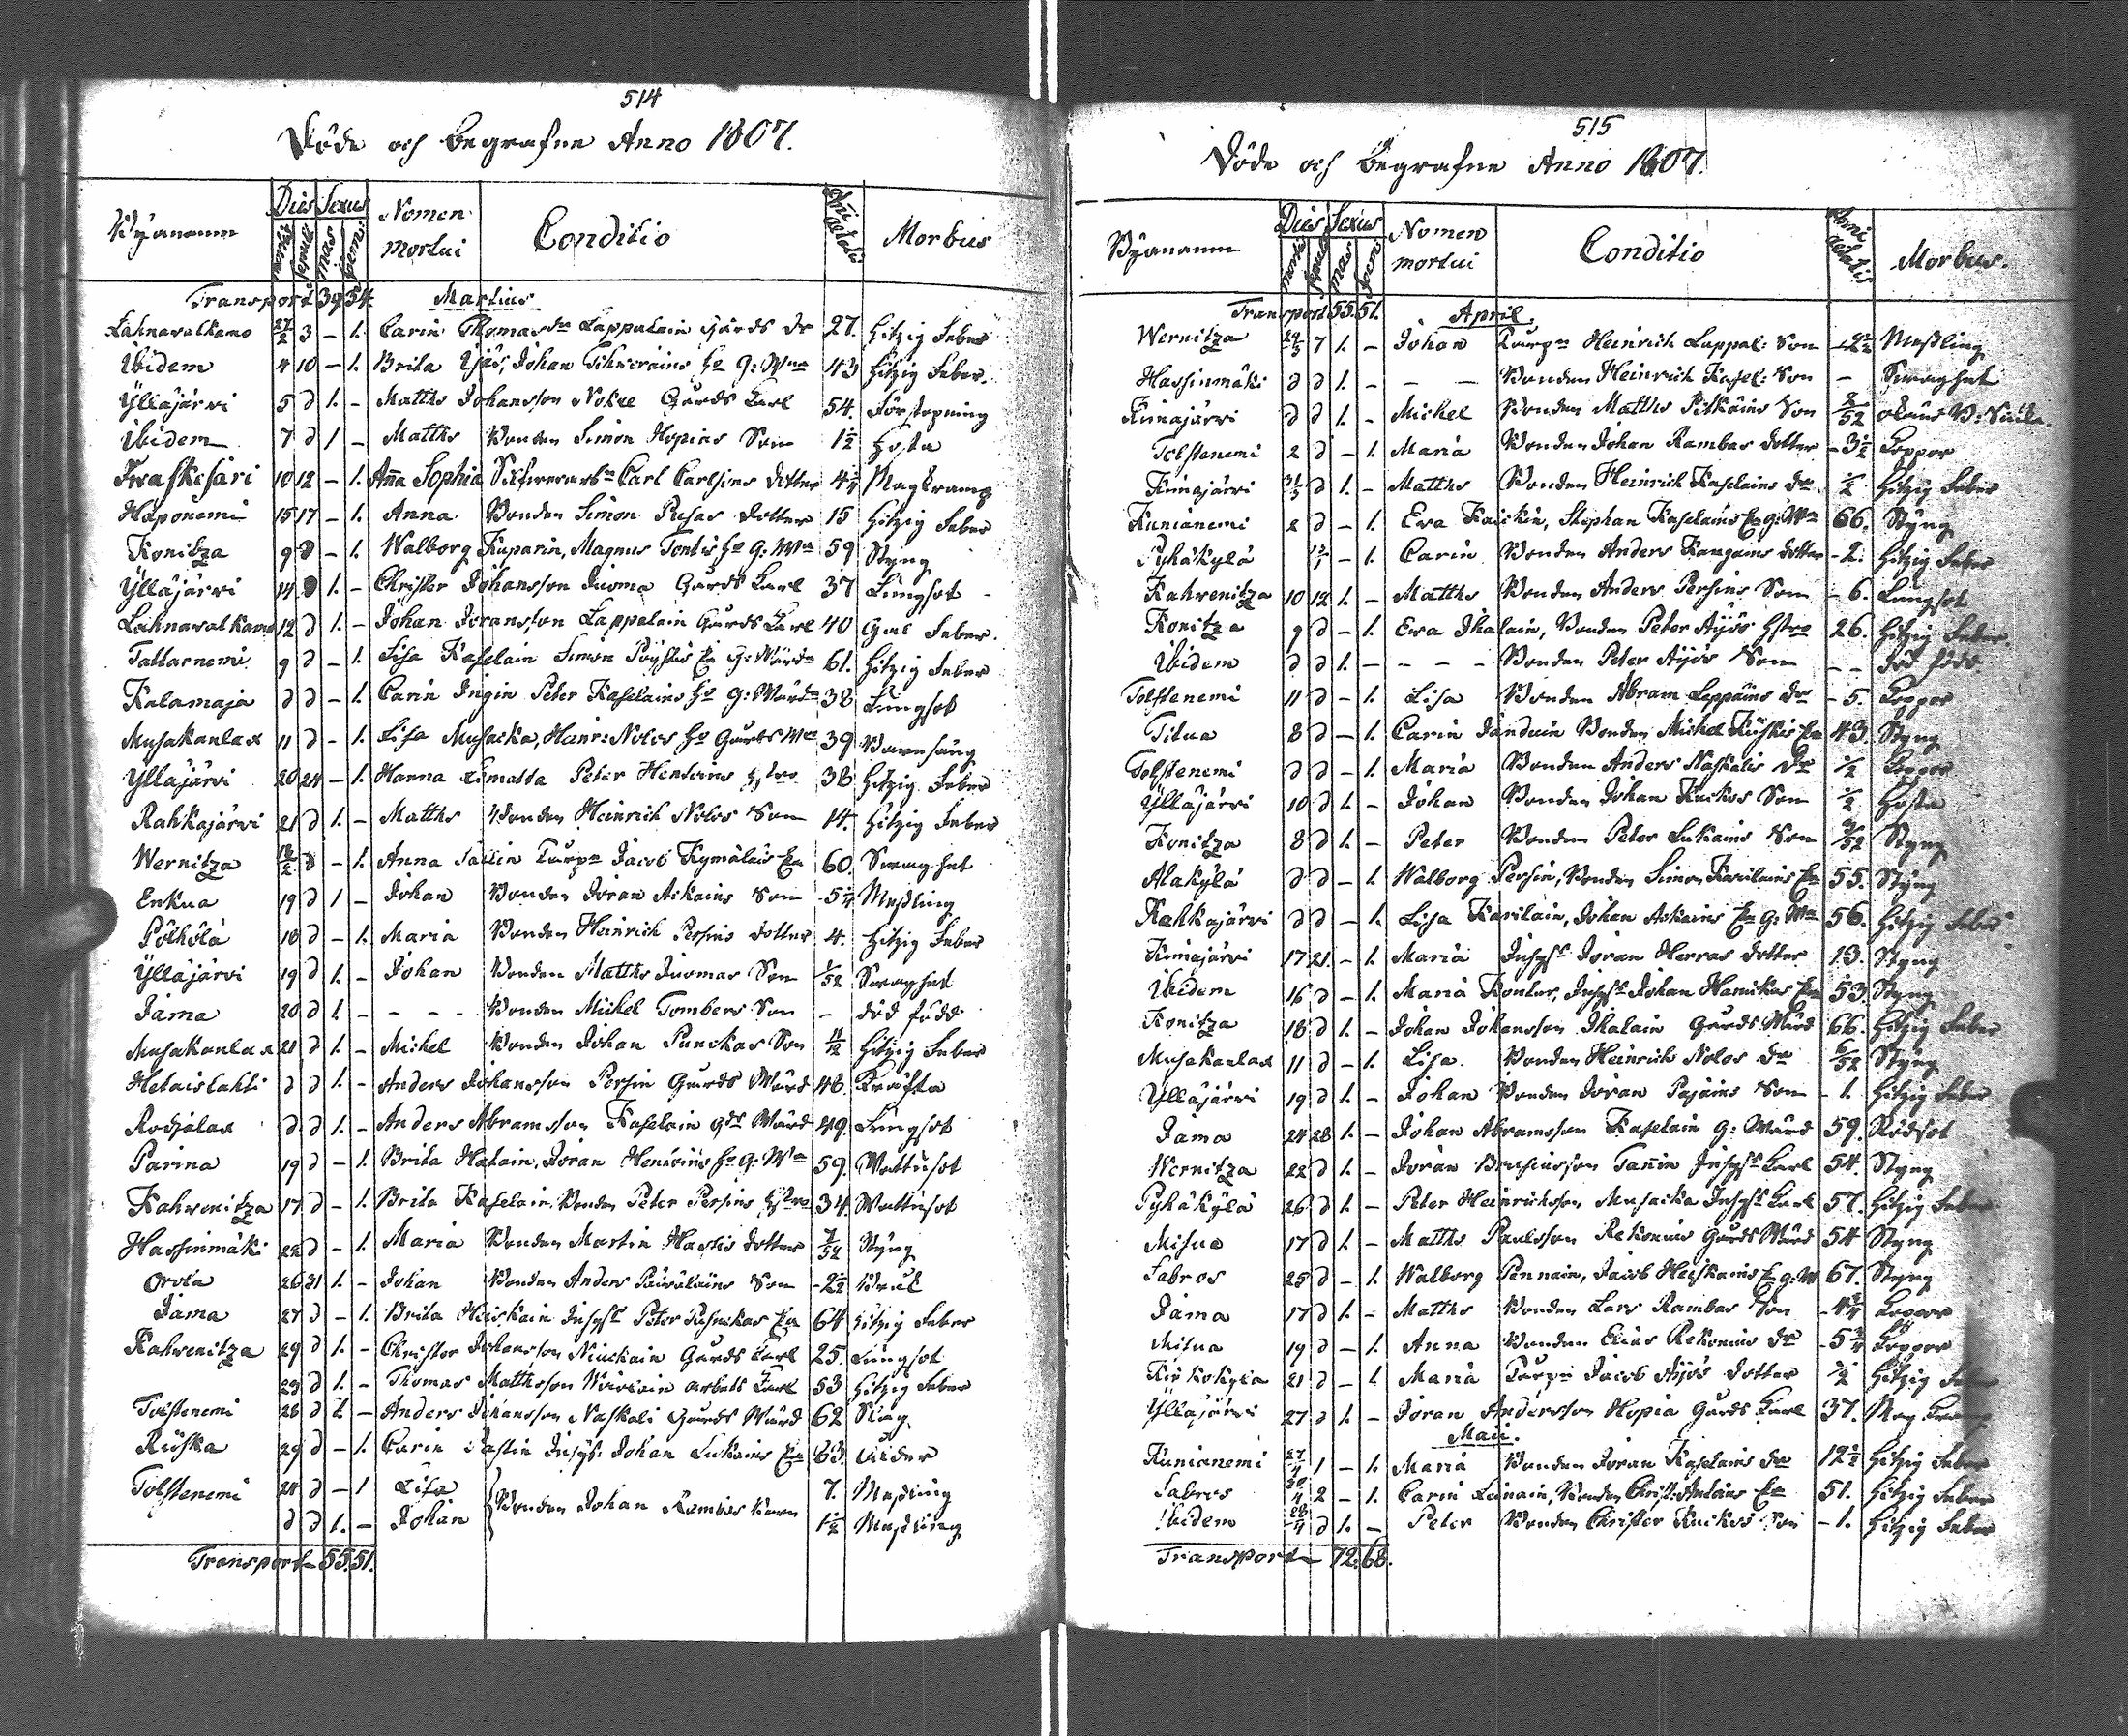 514
Döde och Begrafne Anno 1807.
Byanamn Dies Sexus Nomen mortui Conditio Anni aetatis Morbus
mortis sepult mas foem:
Transport 39. 54. Martius
Lahnavalkamo 27/2 3 – 1. Carin Thomasdr Lappalain Gårds dr 27. Hitzig Feber
Ibidem 4 10 – 1. Brita Johan G: Wna 43 Hitzig Feber.
Ylläjärvi 5 d 1. – Matths Johansson Nokle Gårds Karl 54. Förstopning
Ibidem 7 d 1 – Matths Bonden Simon Hopias Son 1½ Hosta
Kraskisari 10 12 – 1. Anna Sophia Carl Carlsons dotter 4¼ Magkramp
Haponemi 15 17 – 1. Anna Bonden Simon Pusas dotter 15 Hitzig Feber
Konitza 9 d – 1. Walborg Kuparin, Magnus Tontis Ho G: Wna 59 Styng
Ylläjärvi 14 d 1. – Christer Johansson Juoma Gårds Karl 37 Lungsot
Lahnavalkamo 12 d 1. – Johan Joransson Lappalain Gårds Karl 40 Gul Feber.
Tattarnemi 9 d – 1. Lisa Kaselain Simon Pöystis Ea G: Wärdn 61. Hitzig Feber
Kalamaja d d – 1. Carin Ingin Peter Kaselains Ho G: Wärdn 38 Lungsot
Musakanlax 11 d – 1. Lisa Musacka, Heinr: Nolos Ho Gårds Wna 39 Barnsäng
Ylläjärvi 20 24 – 1. Hanna Peter Hentoins Hstro 38 Hitzig Feber
Rahkajärvi 21 d 1. – Matths Bonden Heinrich Nolos Son 14. Hitzig Feber
Wernitza 18/2 d – 1. Anna Torpn Jacob Kymäläis Ea 60. Swaghet
Enkua 19 d 1 – Johan Bonden Joran Askains Son -5¼ Messling
Pölhölä 18 d – 1. Maria Bonden Heinrich Persins dotter 4. Hitzig Feber
Ylläjärvi 19 d 1. – Johan Bonden Matths Juomas Son 1/52 Swaghet
Jama 20 d 1. – – – – Bonden Michel Tombers Son – död född
Musakanlax 21 d 1. – Michel Bonden Johan Punckas Son 11/12 Hitzig Feber
Hetaislahti d d 1. – Anders Johansson Persin Gårds Wärd 48. Kräfta
Rodjalax d. d 1. – Anders Abramsson Kaselain Gds Wärd 49. Lungsot
Parina 19 d – 1. Brita Halain, Joran Hentoins Ho G: Wna 59. Wattusot
Kahrenitza 17. d – 1. Brita Kaselain, Bonden Peter Persins Hstro 34. Wattusot
Hassinmäki 22 d – 1. Maria Bonden Martin Hastis dotter 7/52 Styng
Orola 26 31 1. – Johan Bonden Anders Päiväläins Son -2½ Bråck
Jama 27 d – 1. Brita Heiskain Inhyst Peter Pusuckas Ea 64 Hitzig Feber
Kahrenitza 29 d 1. – Christer Johansson Niuckain Gårds Karl 25. Lungsot
23 d 1. – Thomas Matthsson arbets Karl 53 Hitzig Feber
Tolstenemi 28 d 1. – Anders Johansson Naskali Gårds Wärd 62 Styng
Riiska 29 d – 1. Carin Pastin Inhys: Johan Lukains Ea 63. ålder
Tolstenemi 24 d – 1 Lisa Bonden Johan Rambas barn 7. Messling
d d 1. – Johan 1½ Messling
Transport 55. 51.

515
Döde och Begrafne Anno 1807.
Byanamn Dies Sexus Nomen mortui Conditio Anni aetatis Morbus.
mortis sepult mas foem
Transport 55. 51. April.
Wernitza 29/3 7 1. – Johan Torpn Heinrich Lappal: Son -2½ Messling
Hassinmäki d d 1. – – – Bonden Heinrich Kasel: Son – Swaghet
Kimajärvi d d 1. – Michel Bonden Matths Pitkäins Son 2/52 okänd B: Siuka.
Tolstenemi 2 d – 1. Maria Bonden Johan Rambas dotter -3½ Koppor
Kimajärvi 31/3 d 1. – Matths Bonden Heinrich Kaselains Son ½ Hitzig Feber
Kunianemi 2 d – 1. Eva Kaickin, Stephan Kaselains Ea g: Wn 66. Styng
Pyhäkylä – 1. Carin Bonden Anders Kangains dotter -2. Hitzig Feber
Kahrenitza 10 12 1. – Matths Bonden Anders Persins Son – 6. Lungsot
Konitza 9 d – 1. Eva Ihalain, Bonden Peter Äijös Hstro 26. Hitzig Feber
Ibidem d d 1. – – – – Bonden Peter Äijös Son – – död född
Tolstenemi 11 d – 1. Lisa Bonden Abram Leppäins dr – 5. Koppor
Titua 8 d – 1. Carin Janduin Bonden Michel Kuskis Ea 43. Styng
Tolstenemi d d – 1. Maria Bonden Anders Naskalis dr ½ Koppor
Ylläjärvi 10 d 1. – Johan Bonden Johan Kuckos Son ½ Hosta
Konitza 8 d 1. – Peter Bonden Peter Lukains Son Styng
Alakylä d d – 1. Walborg Persin, Bonden Simon Karilains Ea 55. Styng
Rahkajärvi d d – 1. Lisa Karilain, Johan Askains Ea g: Wn 56. Hitzig Feber
Kimajärvi 17 21. – 1. Maria Inhyst Joran Herras dotter 13. Styng
Ibidem 16 d – 1. Maria Kontor, Inhyst Johan Hamickas Ea 53. Styng
Konitza 18 d 1. – Johan Johansson Ihalain Gårds Wärd 66. Hitzig Feber
Musakanlax 11 d – 1. Lisa Bonden Heinrich Nolos dr 6/52 Styng
Ylläjärvi 19 d 1. – Johan Bonden Joran Pajains Son – 1. Hitzig Feber
Jama 24 28 1. – Johan Abramsson Kaselain G: Wärd 59. Rödsot
Wernitza 22 d 1. – Joran Brusiusson Tannin Inhyst Karl 54. Styng
Pyhäkylä 26 d 1. – Peter Heinrichsson Musacka Inhyst Karl 57. Hitzig Feber
Misua 17 d 1. – Matths Paulsson Rekonius Gårds Wärd 54 Styng
Fabros 25 d – 1. Walborg Pennain, Jacob Heiskains Ea g: W 67. Styng
Jama 17 d 1. – Matths Bonden Lars Rambas Son Koppor
Misua 19 d – 1. Anna Bonden Elias Rekonius dr Koppor
Kirkokylä 21 d – 1. Maria Torpn Jacob Äijös dotter ½ Hitzig
Ylläjärvi 27 d 1. – Joran Andersson Hopia Gårds Karl 37. Mag
Maii.
Kunianemi 27/4 1 – 1. Maria Bonden Joran Kaselains dr 12½ Hitzig Feber
Fabros 30/4 2 – 1. Carin Leinain, Bonden Christ: Antoins Ea 51. Hitzig Feber
Ibidem 28/4 d 1. – Peter Bonden Christer Kuckos Son – 1. Hitzig Feber
Transport 72. 68.